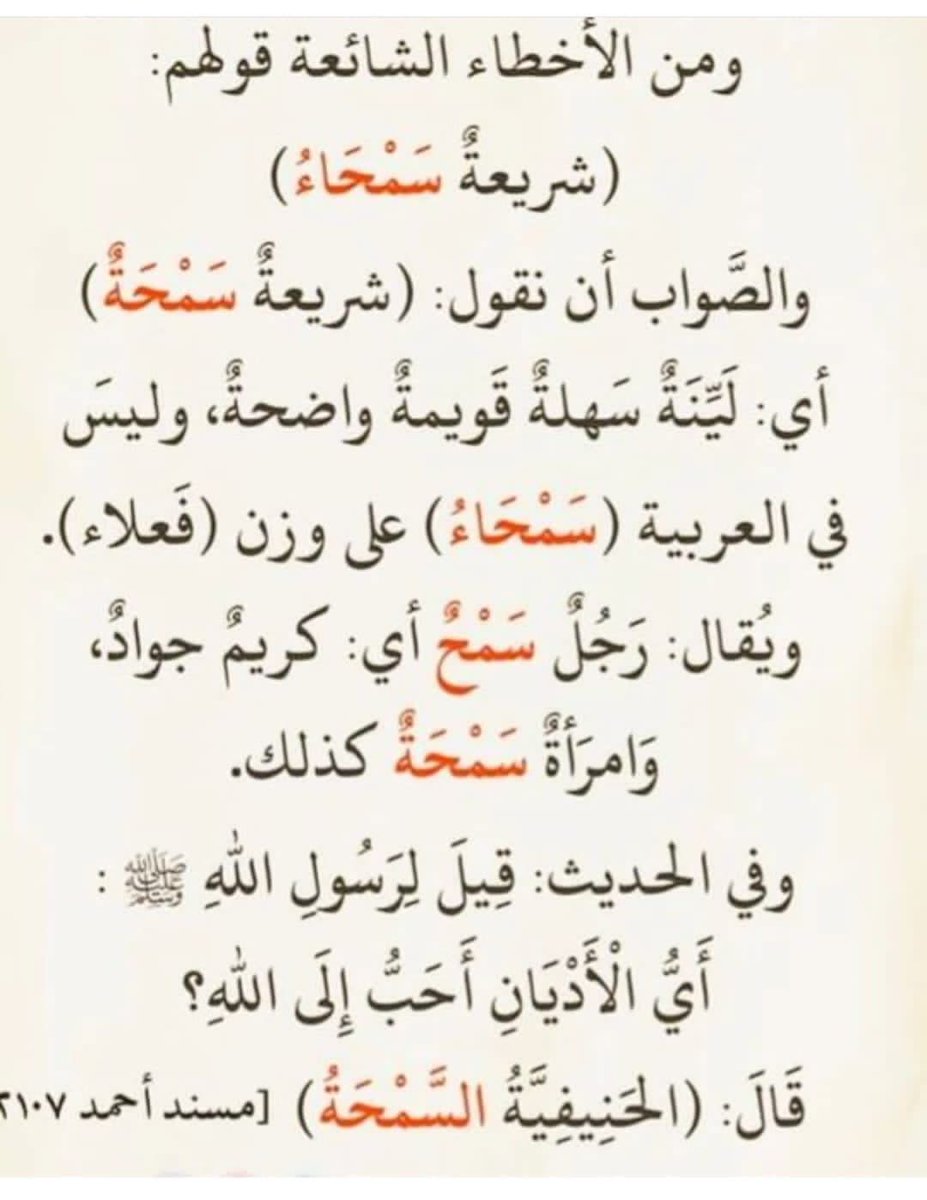 ومن الأخطاء الشائعة قولهم:
(شريعةٌ سَمْحَاءُ)
والصَّواب أن نقول: (شريعةٌ سَمْحَةٌ)
أي: لَيِّنَةٌ سَهلةٌ قَويمةٌ واضحةٌ، وليسَ
في العربية (سَمْحَاءُ) على وزن (فَعلاء).
ويُقال: رَجُلٌ سَمْحٌ أي: كريمٌ جوادٌ،
وَامرَأةٌ سَمْحَةٌ كذلك.
وفي الحديث: قِيلَ لِرَسُولِ اللهِ ﷺ :
أَيُّ الْأَدْيَانِ أَحَبُّ إِلَى اللهِ؟
قَالَ: (الحَنِيفِيَّةُ السَّمْحَةُ) [مسند أحمد ٢١٠٧